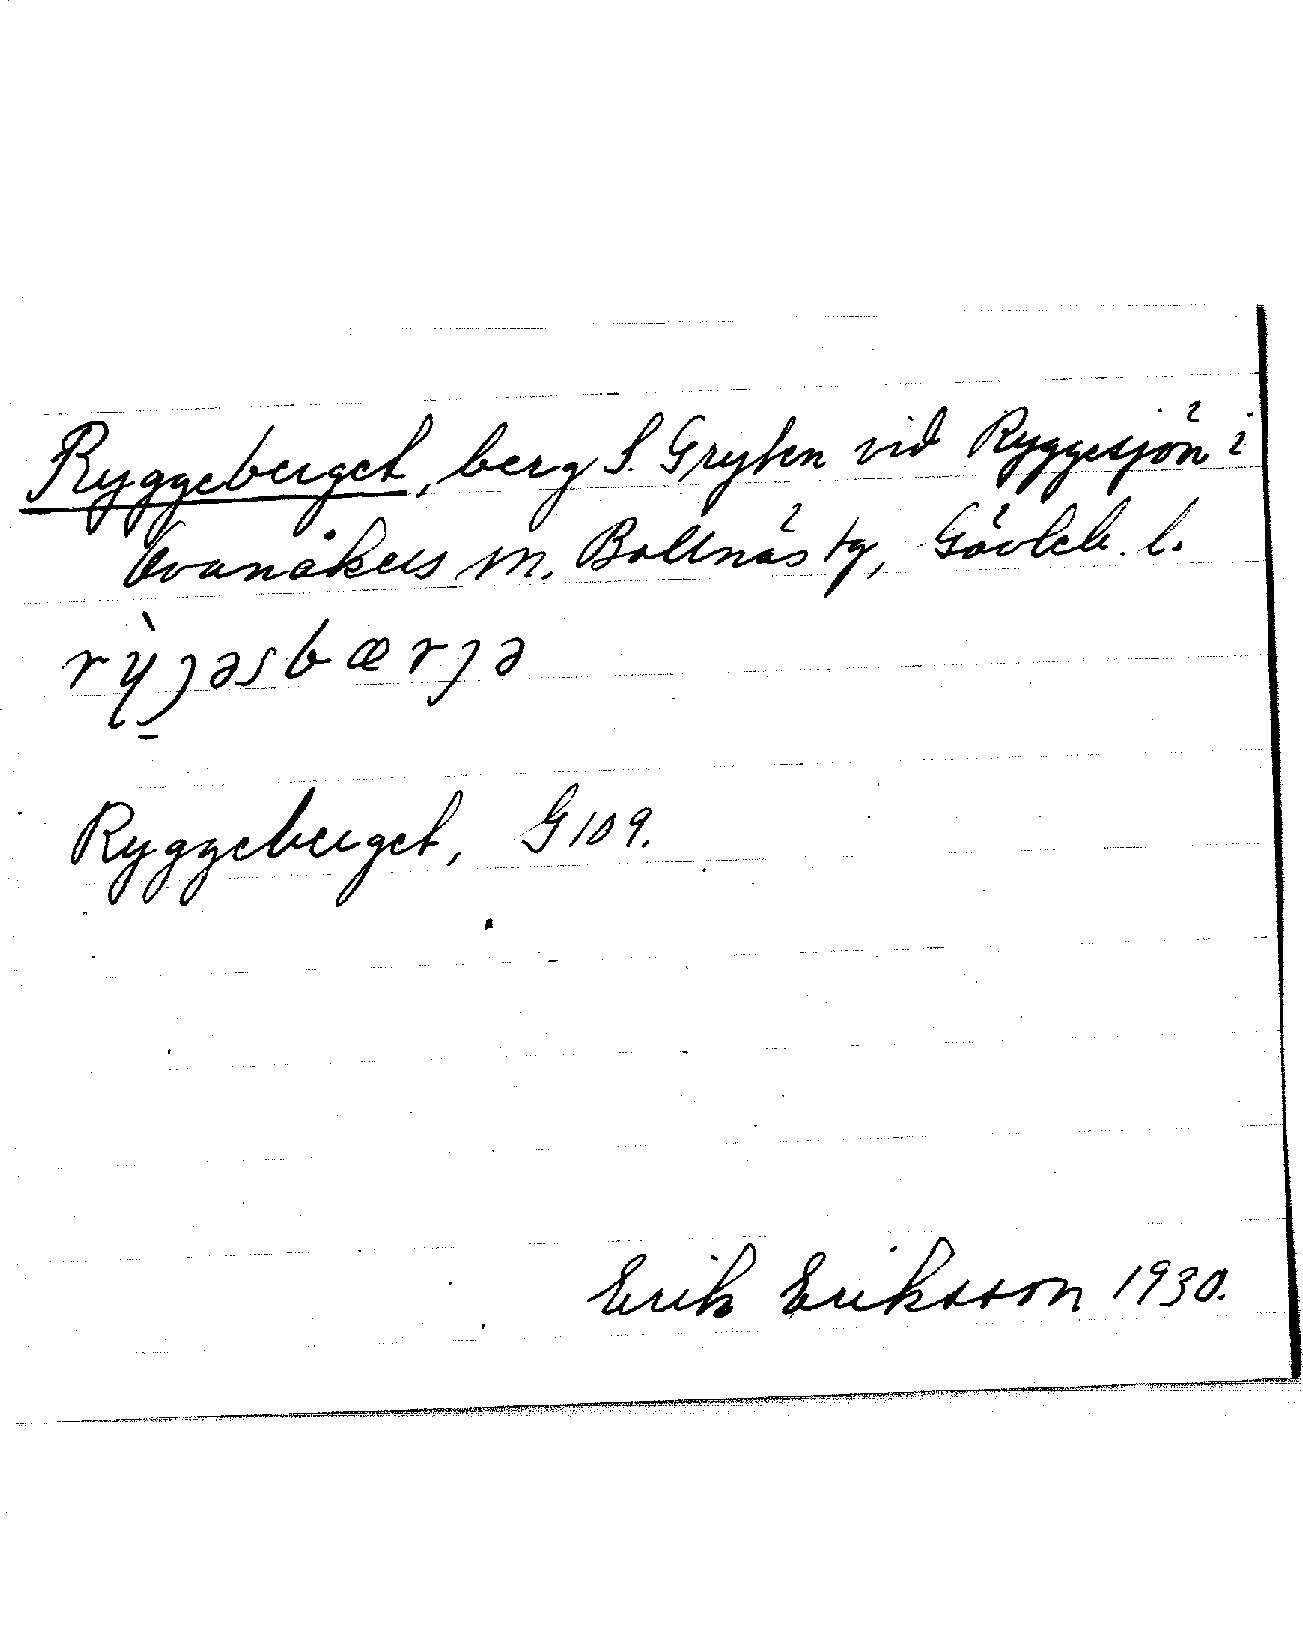 Ryggeberget, berg S. Gryten vid Ryggesjön i
Ovanåkers sn. Bollnäs tg, Gävleb. l.
rỳȷəsbærȷə
Ryggeberget, G109.
Erik Eriksson 1930.